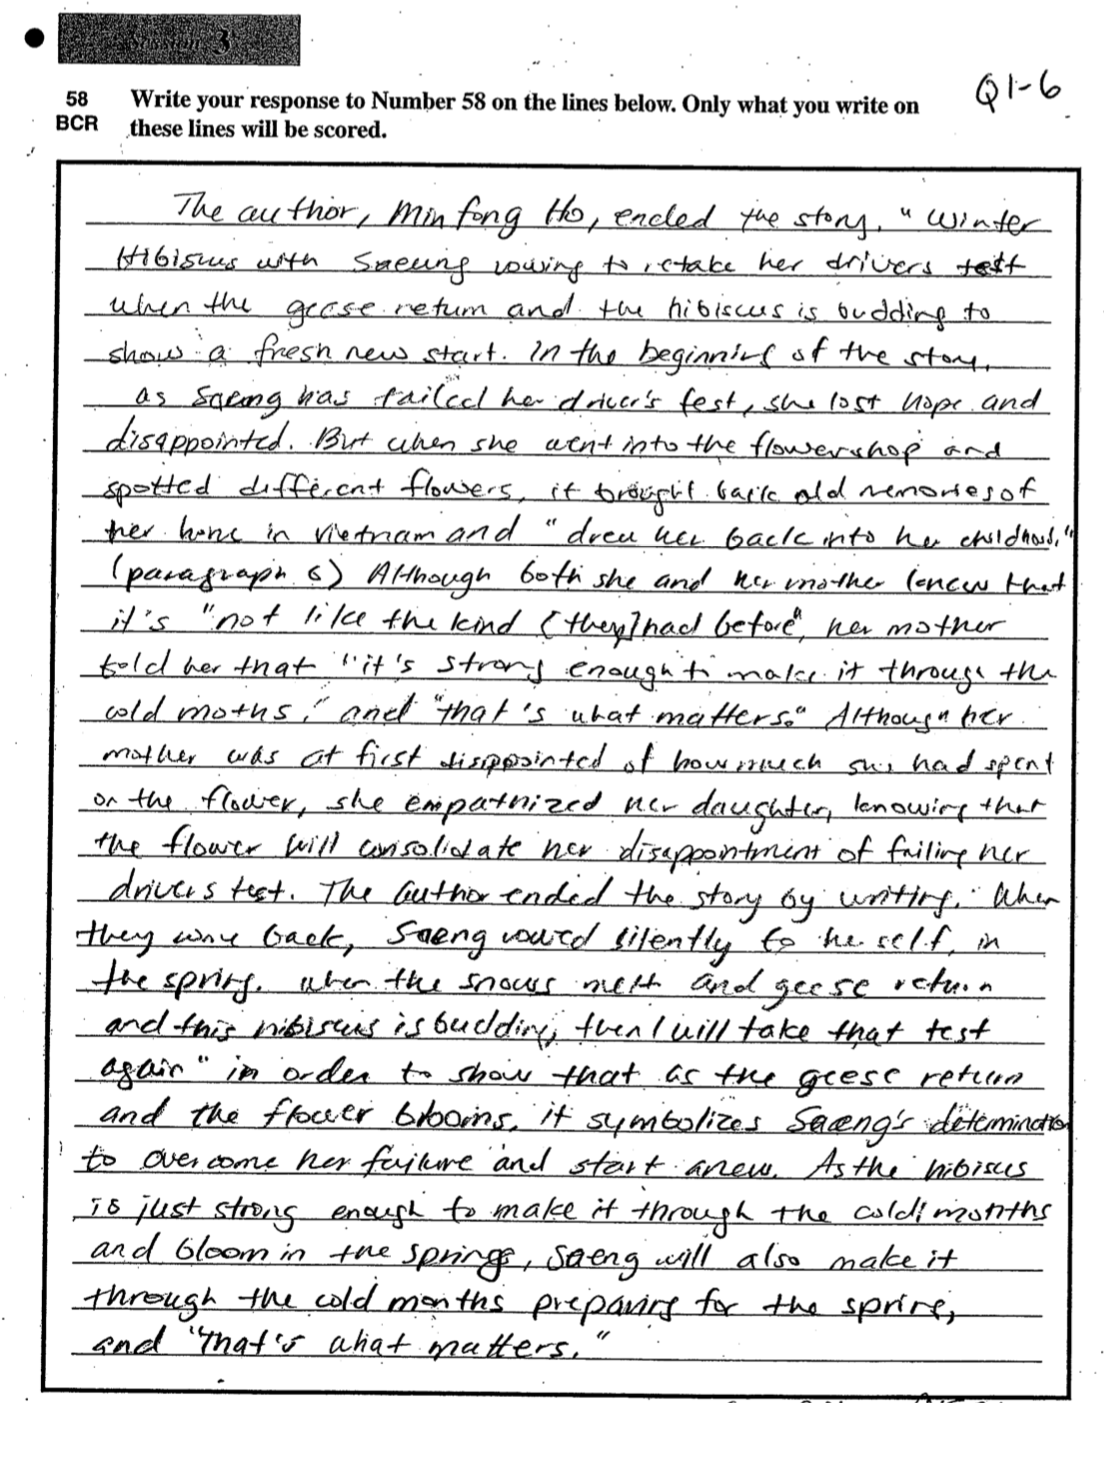 Session 3
Q1-6
58 Write your response to Number 58 on the lines below. Only what you write on
BCR these lines will be scored.
The author, Minfong Ho, ended the story, "Winter
Hibiscus with Saeung vowing to retake her drivers test
when the geese return and the hibiscus is budding to
show a fresh new start. In the beginning of the story,
as Saeng has failed her driver's test, she lost hope and
disappointed. But when she went into the flowershop and
spotted different flowers, it brought back old memories of
her home in Vietnam and "drew her back into her childhood,"
(paragraph 6) Although both she and her mother knew that
it's "not like the kind [they] had before", her mother
told her that "it's strong enough to make it through the
cold moths," and "that's what matters." Although her
mother was at first disappointed of how much she had spent
on the flower, she empathized her daughter, knowing that
the flower will consolidate her disappointment of failing her
drivers test. The author ended the story by writing, "When
they come back, Saeng vowed silently to herself, in
the spring, when the snows melt and geese return
and this hibiscus is budding, then I will take that test
again" in order to show that as the geese return
and the flower blooms, it symbolizes Saeng's determination
to overcome her failure and start anew. As the hibiscus
is just strong enough to make it through the cold months
and bloom in the spring, Saeng will also make it
through the cold months preparing for the spring,
and "that's what matters."